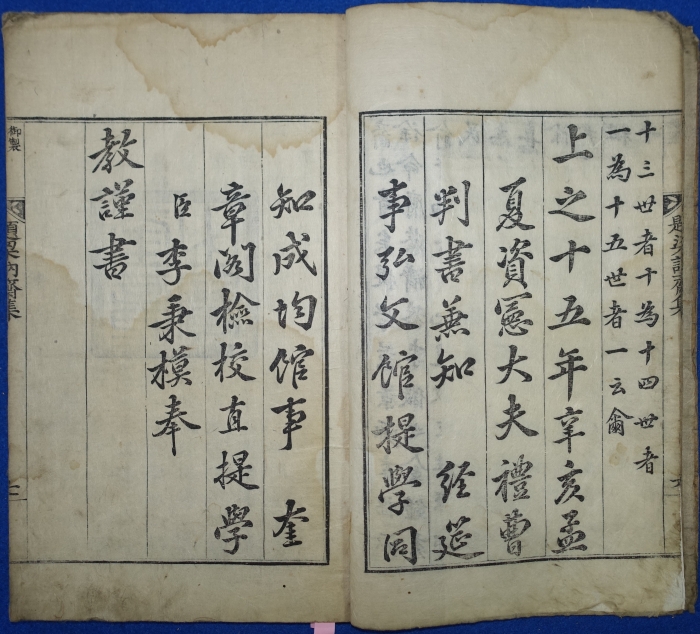 十三世者十為十四世者
一為十五世者一云爾
上之十五年辛亥孟
夏資憲大夫禮曹
判書兼知 經筵
事弘文館提學同
知成均館事 奎
章閣檢校直提學
臣李秉模奉
教謹書
御製
齋集